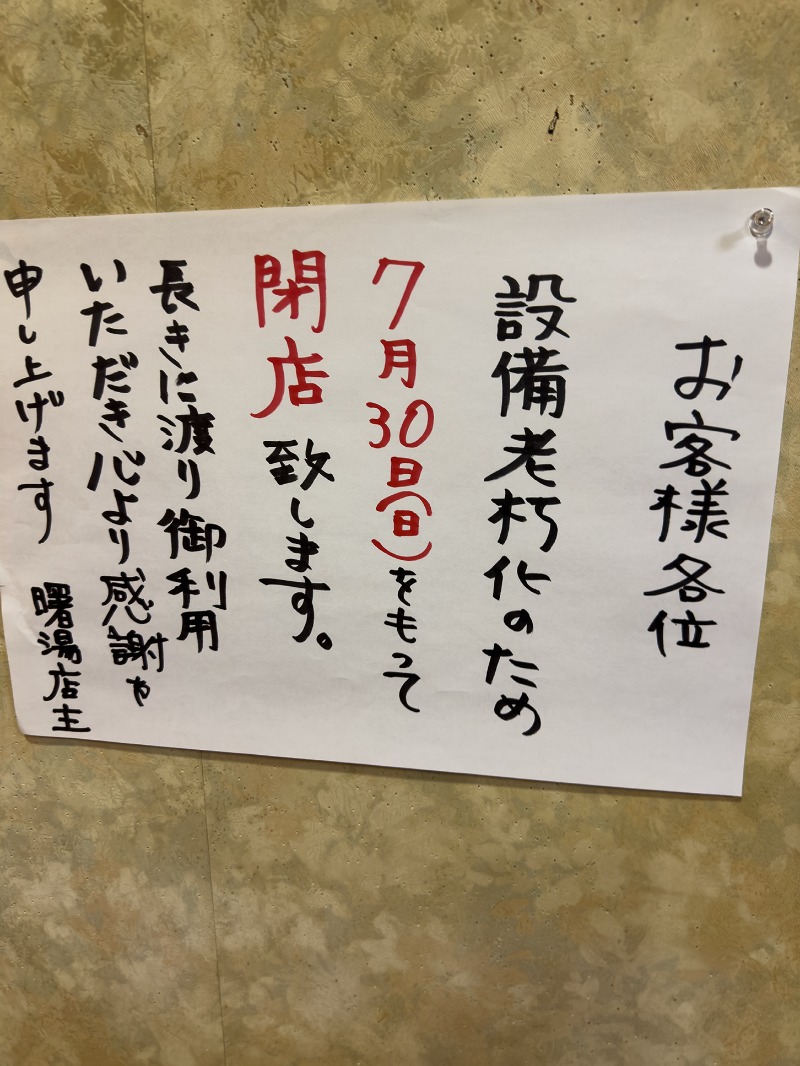 お客様各位
設備老朽化のため
7月30日(日)をもって
閉店致します。
長きに渡り御利用
いただき心より感謝を
申し上げます
曙湯店主